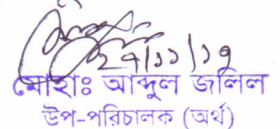 ২৭/১১/১৭
মোহাঃ আব্দুল জলিল
উপ-পরিচালক (অর্থ)